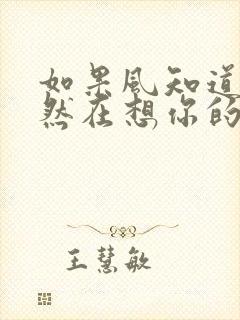 如果風知道
然在想你的
王慧敏